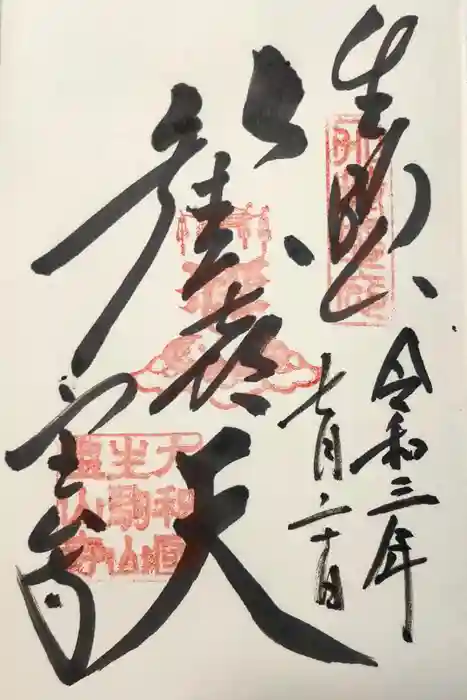 生駒
歡喜天
宝山寺
令和三年
七月二十日
大和國
生駒山
寶山寺